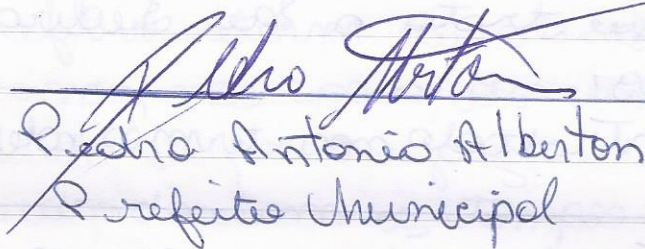 Pedro Alberton
Pedro Antonio Alberton
Prefeito Municipal